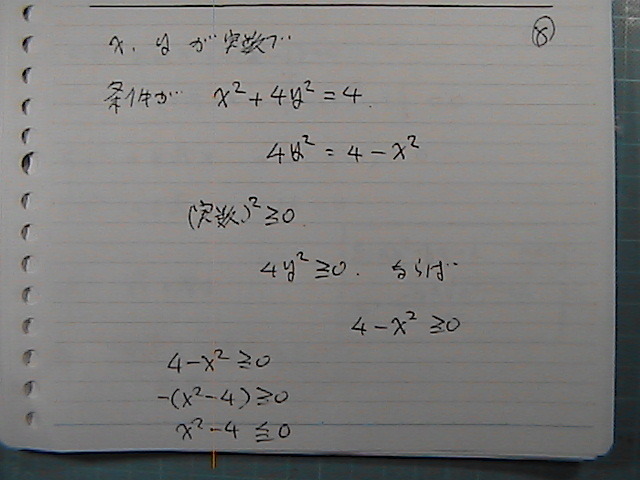 x, y が実数で
⑧
条件が x² + 4y² = 4.
4y² = 4 - x²
(実数)² ≧ 0
4y² ≧ 0. ならば
4 - x² ≧ 0
4 - x² ≧ 0
-(x² - 4) ≧ 0
x² - 4 ≦ 0